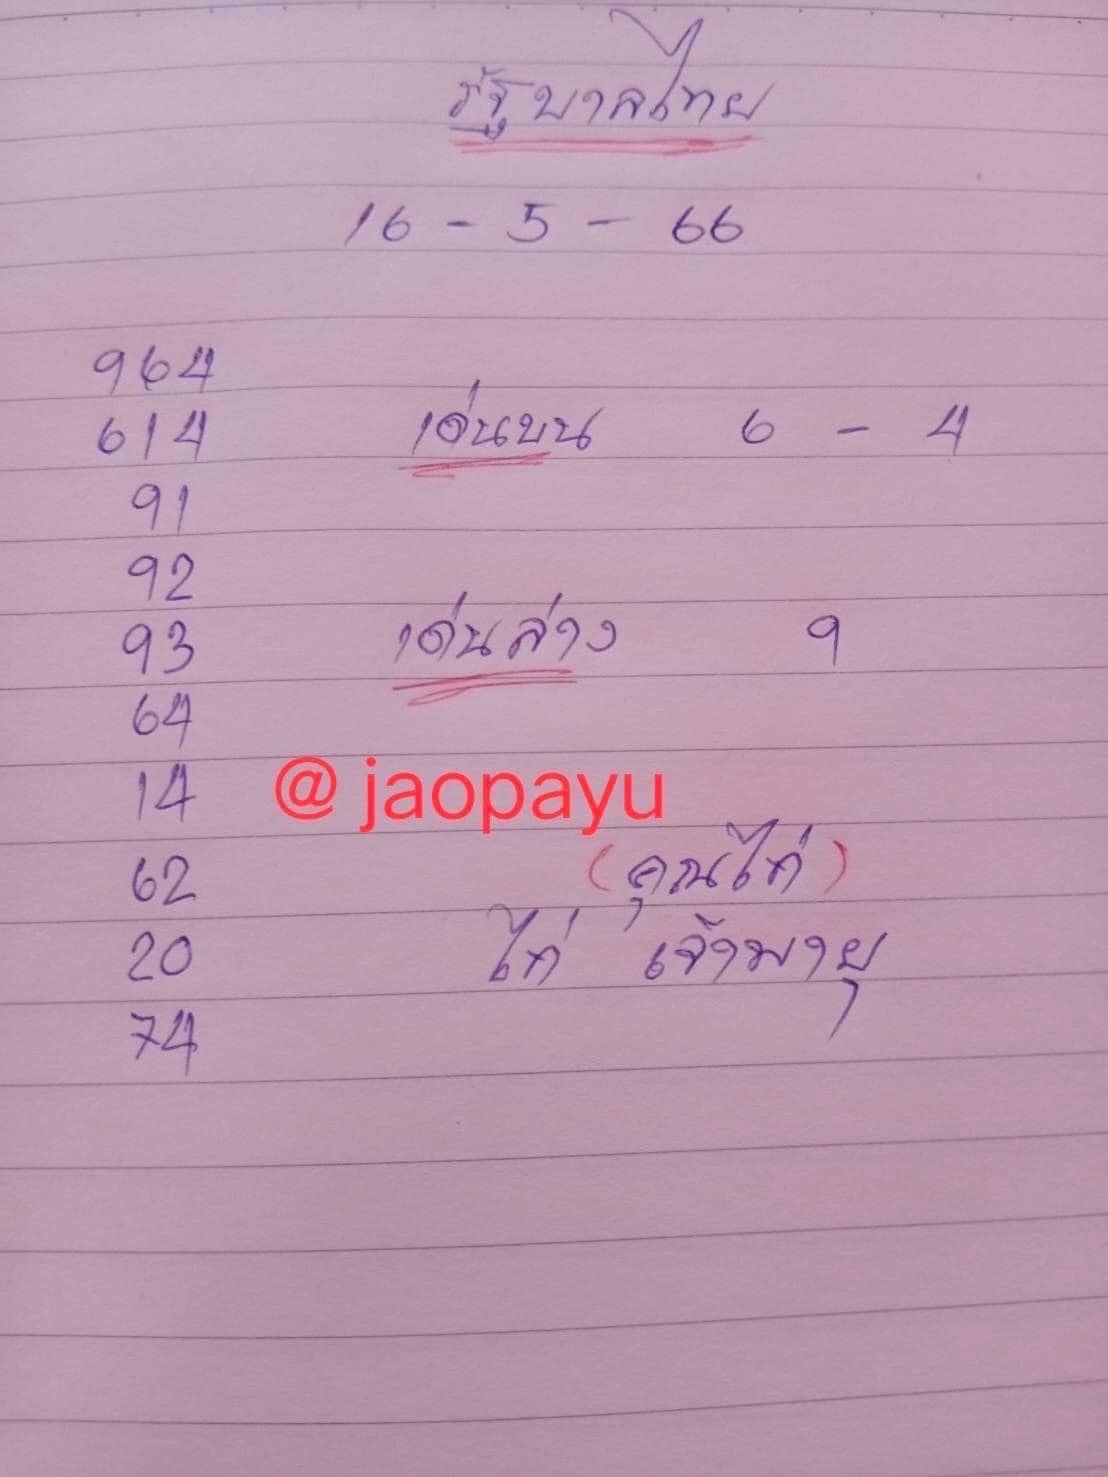 รัฐบาลไทย
16 - 5 - 66
964
614 เด่นบน 6 - 4
91
92
93 เด่นล่าง 9
64
14 @ jaopayu
62 (คุณไก่)
20 ไก่ เจ้าพายุ
74